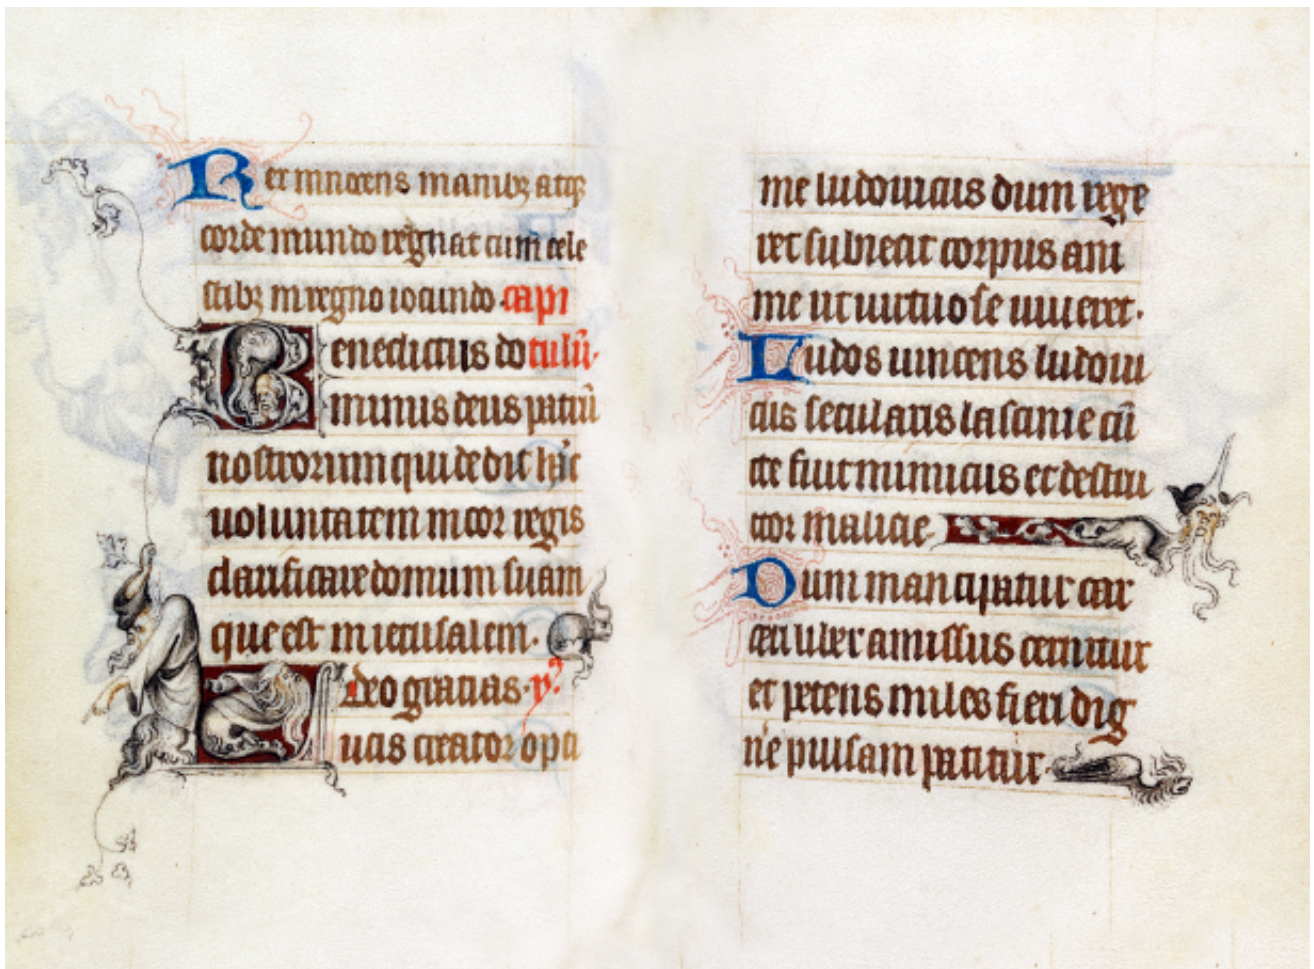 Rex innocens manibꝫ atqꝫ
corde mundo regnat cum cele
stibꝫ in regno iocundo. capi
Benedictus do tulū.
minus deus patrū
nostrorum qui dedit hāc
uoluntatem in cor regis
clarificare domum suam
que est in ierusalem.
deo gratias.
Lucis creator opti
me ludouicus dum rege
ret subiecit corpus ani
me ut uirtuose uiueret.
Ludos uincens ludoui
cus secularis lasciuie cū
cte fuit inimicus et destru
ctor malicie.
Dum mancipatur car
ceri liber amissus cernitur
et petens miles fieri dig
ne pulsam patitur.